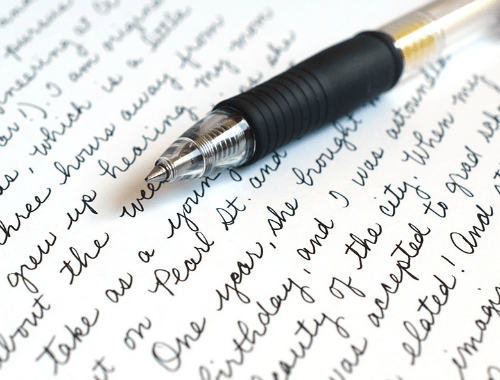 neering at
ar!). I am origina
as, which is a little
three hours away from
grew up hearing my mom
about the wee she
take as a young
t on Pearl St. and
One year, she brought m
birthday, and I was astounde
eauty of the city. When my
was accepted to grad sch
elated! And
imagi